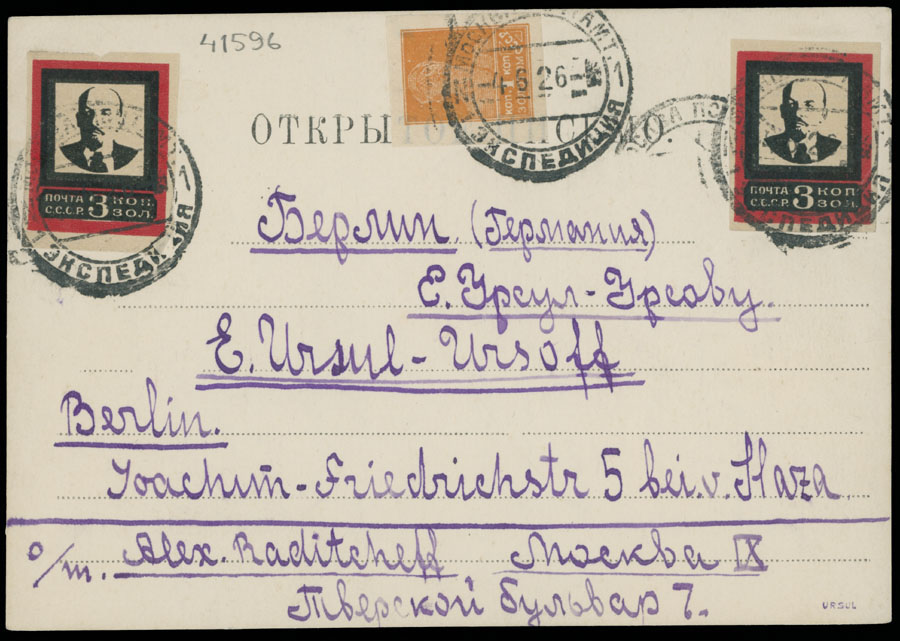 41596
ОТКРЫ
4 6 26
ЭКСПЕДИЦИЯ
1
ПОЧТА 3 КОП.
С.С.С.Р. ЗОЛ.
1
ЭКСПЕДИЦИЯ
ПОЧТА 3 КОП.
С.С.С.Р. ЗОЛ.
1
Берлин (Германия)
Е. Урсул-Урсову.
E. Ursul-Ursoff
Berlin.
Joachim-Friedrichstr 5 bei v. Haza
о/т. Alex. Raditcheff Москва IX
Тверской бульвар 7.
URSUL